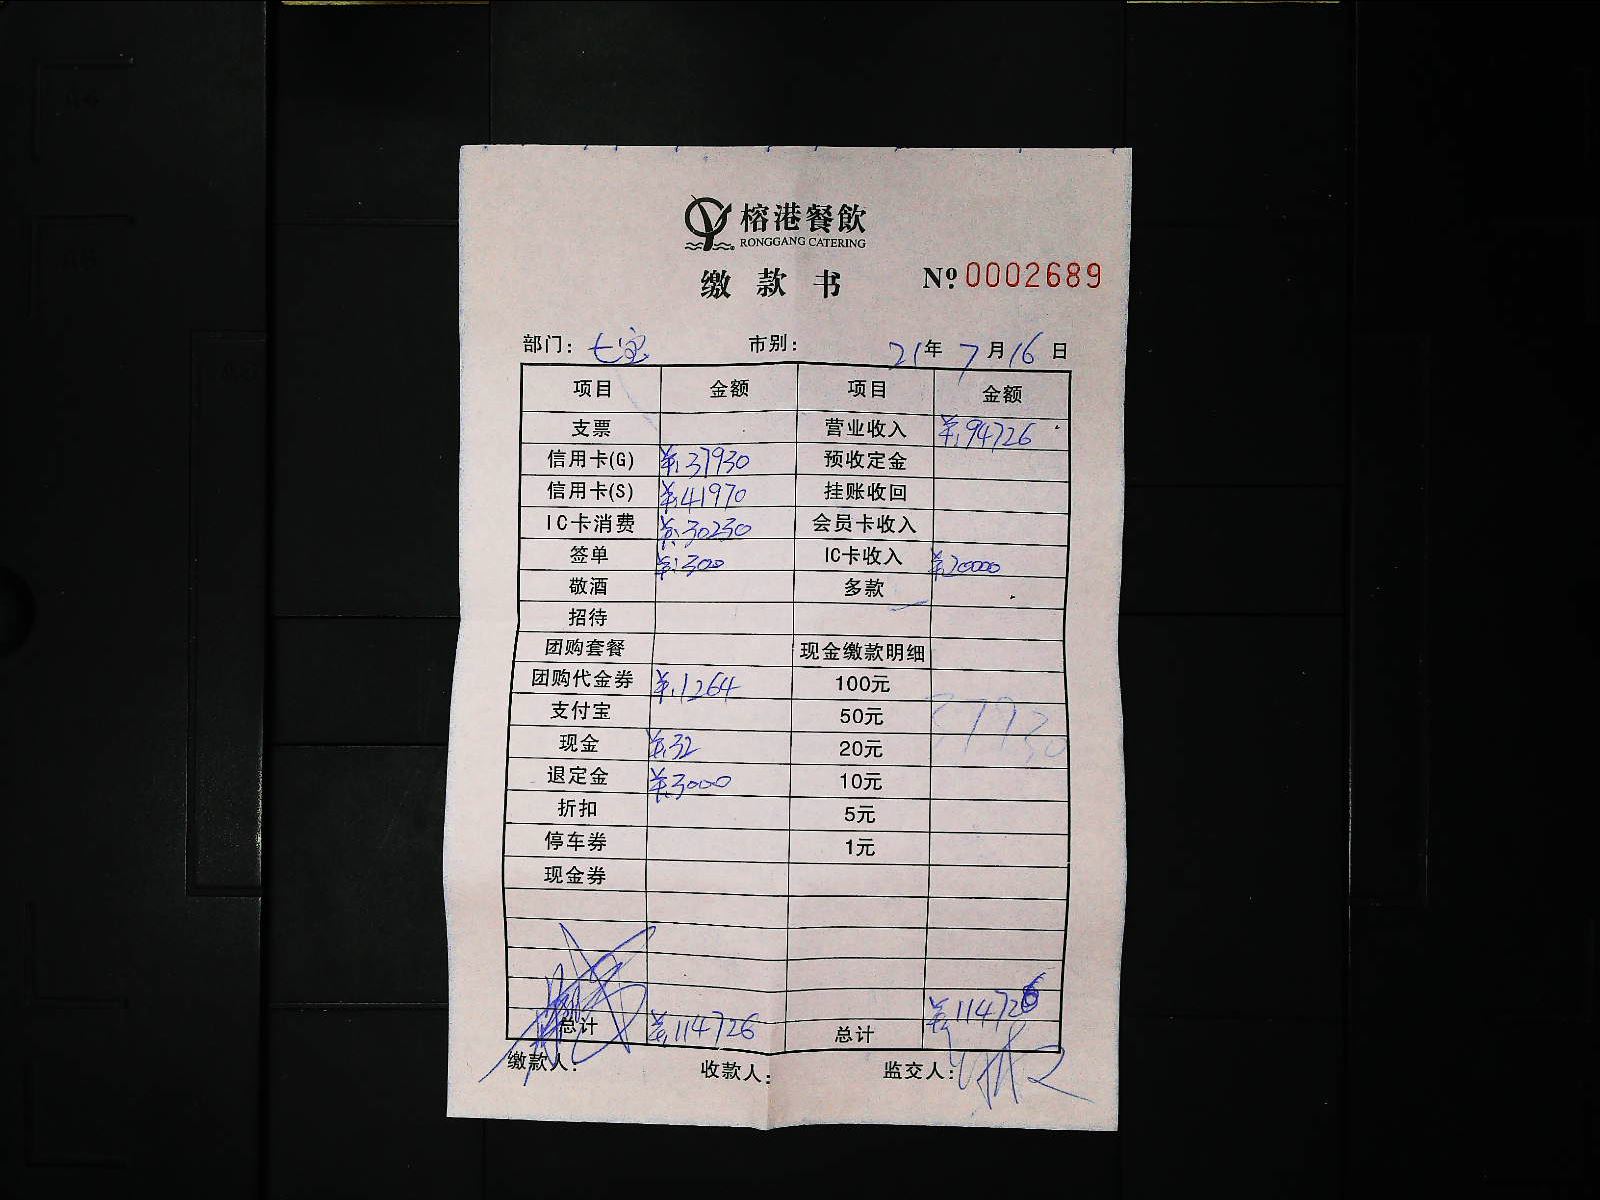 榕港餐飲
RONGGANG CATERING
缴款书 №0002689
部门: 七宝 市别: 21年 7月16日
项目 金额 项目 金额
支票 营业收入 ¥94726
信用卡(G) ¥37930 预收定金
信用卡(S) ¥41970 挂账收回
IC卡消费 ¥30230 会员卡收入
签单 ¥300 IC卡收入 ¥20000
敬酒 多款
招待
团购套餐 现金缴款明细
团购代金券 ¥1264 100元
支付宝 50元
现金 ¥32 20元
退定金 ¥3000 10元
折扣 5元
停车券 1元
现金券
总计 ¥114726 总计 ¥114726
缴款人: 收款人: 监交人: